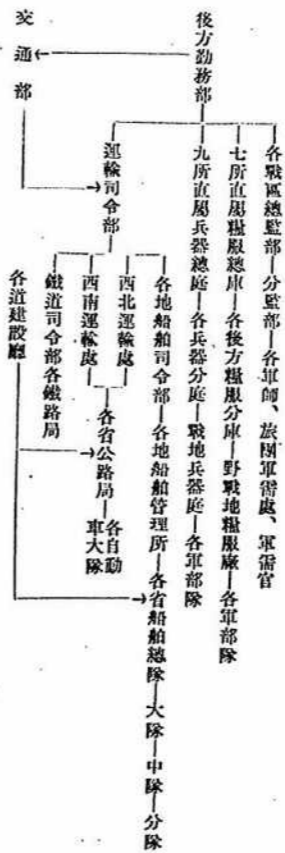 後方勤務部
各戰區總監部—分監部—各軍師、旅團軍需處、軍需官
七所直屬糧服總庫—各後方糧服分庫—野戰地糧服廠—各軍部隊
九所直屬兵器總庭—各兵器分庭—戰地兵器庭—各軍部隊
運輸司令部
各地船舶司令部—各地船舶管理所—各省船舶總隊—大隊—中隊—分隊
西北運輸處
西南運輸處
各省公路局—各自動
車大隊
鐵道司令部各鐵路局
交通部
各道建設廳